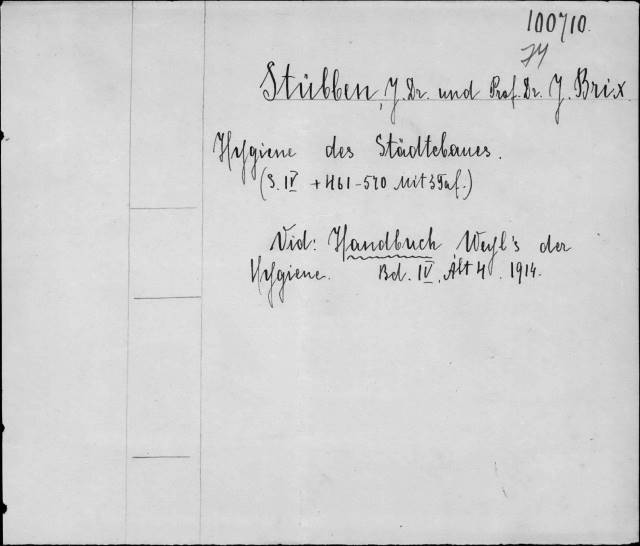 100710.
74
Stübben, J. Dr. und Prof. Dr. J. Brix.
Hygiene des Städtebaues.
(S. IV + 461-570 Mit 3 Taf.)
Vid: Handbuch Weyl's der
Hygiene. Bd. IV, Abt 4. 1914.